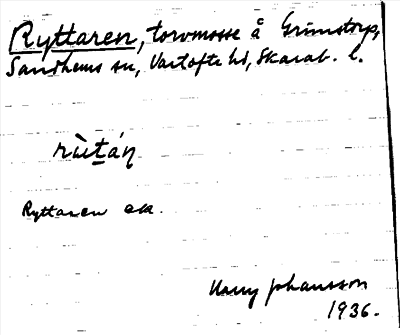 Ryttaren, torvmosse å Grimstorp,
Sandhems sn, Vartofte hd, Skarab. l.
rùt̲áṇ
Ryttaren eca.
Harry Johansson
1936.